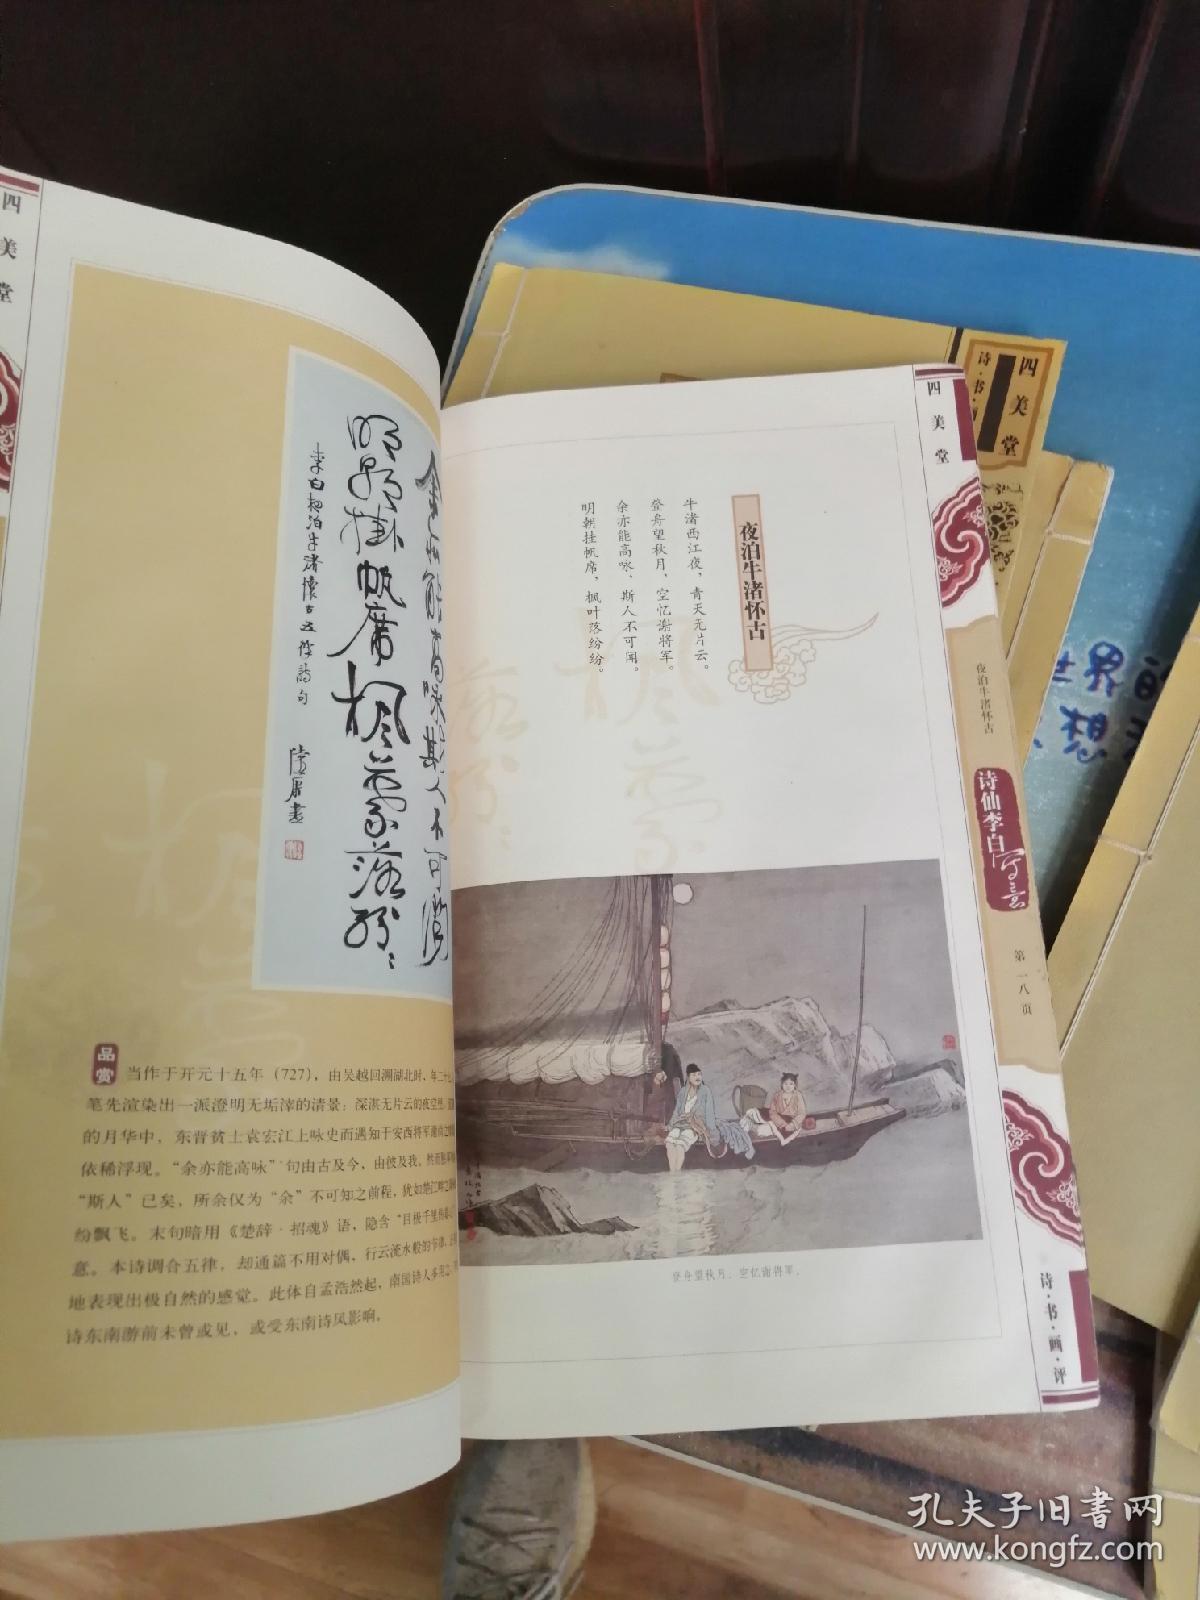 四美堂
余亦能高咏斯人不可闻
明朝挂帆席枫叶落纷纷
李白夜泊牛渚怀古五律诗句
品赏
当作于开元十五年(727),由吴越回溯湖北时,年二十
笔先渲染出一派澄明无垢滓的清景:深湛无片云的夜空里,
的月华中,东晋贫士袁宏江上咏史而遇知于安西将军谢尚之
依稀浮现。“余亦能高咏”句由古及今,由彼及我,然而
“斯人”已矣,所余仅为“余”不可知之前程,犹如楚江畔之
纷飘飞。末句暗用《楚辞·招魂》语,隐含“目极千里
意。本诗调合五律,却通篇不用对偶,行云流水般的节律,
地表现出极自然的感觉。此体自孟浩然起,南国诗人多用之,
诗东南游前未曾或见,或受东南诗风影响。
夜泊牛渚怀古
牛渚西江夜,青天无片云。
登舟望秋月,空忆谢将军。
余亦能高咏,斯人不可闻。
明朝挂帆席,枫叶落纷纷。
登舟望秋月,空忆谢将军。
四美堂
夜泊牛渚怀古
诗仙李白
第一八页
诗·书·画·评
四美堂
诗·书·画
世界的
想
孔夫子旧书网
www.kongfz.com